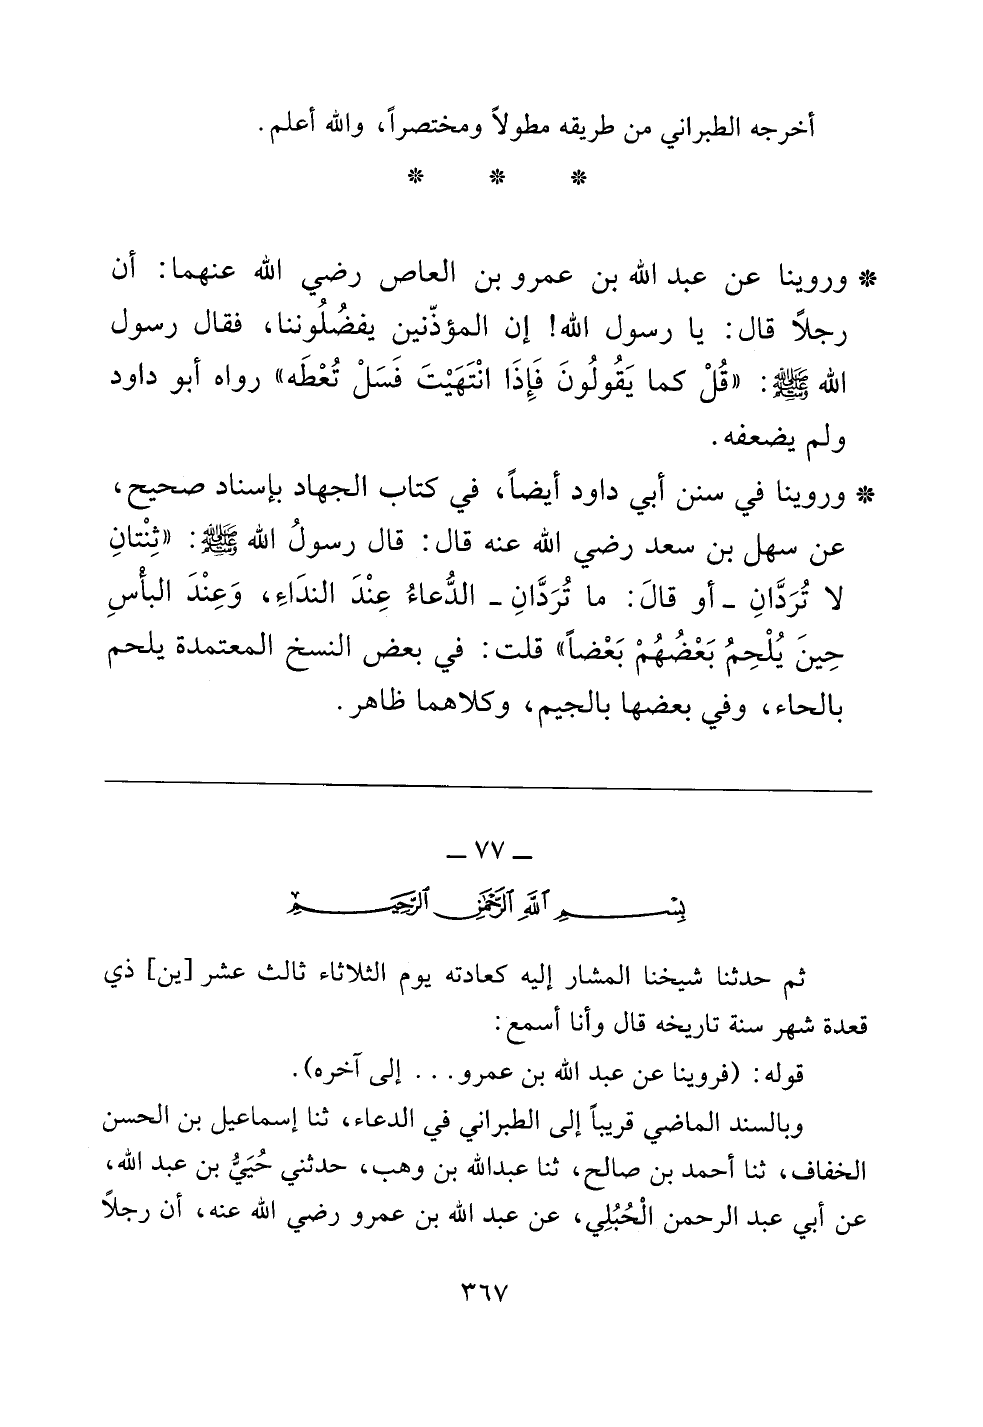 أخرجه الطبراني من طريقه مطولاً ومختصراً، والله أعلم.
* * *
* وروينا عن عبد الله بن عمرو بن العاص رضي الله عنهما: أن
رجلاً قال: يا رسول الله! إن المؤذّنين يفضُلُوننا، فقال رسول
الله ﷺ: «قُلْ كما يَقُولُونَ فَإِذَا انْتَهَيْتَ فَسَلْ تُعْطَه» رواه أبو داود
ولم يضعفه.
* وروينا في سنن أبي داود أيضاً، في كتاب الجهاد بإسناد صحيح،
عن سهل بن سعد رضي الله عنه قال: قال رسولُ الله ﷺ: «ثِنْتانِ
لا تُرَدَّانِ ـ أو قالَ: ما تُرَدَّانِ ـ الدُّعاءُ عِنْدَ الندَاءِ، وَعِنْدَ البأْسِ
حِينَ يُلْحِمُ بَعْضُهُمْ بَعْضاً» قلت: في بعض النسخ المعتمدة يلحم
بالحاء، وفي بعضها بالجيم، وكلاهما ظاهر.
ـ ٧٧ ـ
بِسْمِ اللَّهِ الرَّحْمَٰنِ الرَّحِيمِ
ثم حدثنا شيخنا المشار إليه كعادته يوم الثلاثاء ثالث عشر [ين] ذي
قعدة شهر سنة تاريخه قال وأنا أسمع:
قوله: (فروينا عن عبد الله بن عمرو... إلى آخره).
وبالسند الماضي قريباً إلى الطبراني في الدعاء، ثنا إسماعيل بن الحسن
الخفاف، ثنا أحمد بن صالح، ثنا عبدالله بن وهب، حدثني حُيَيُّ بن عبد الله،
عن أبي عبد الرحمن الْحُبُلِي، عن عبد الله بن عمرو رضي الله عنه، أن رجلاً
٣٦٧